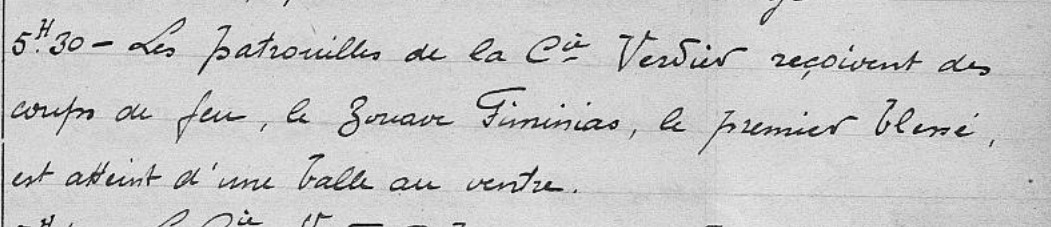 5H.30 - Les patrouilles de la Cie Verdier reçoivent des
coups de feu, le Zouave Fiminias, le premier blessé,
est atteint d'une balle au ventre.